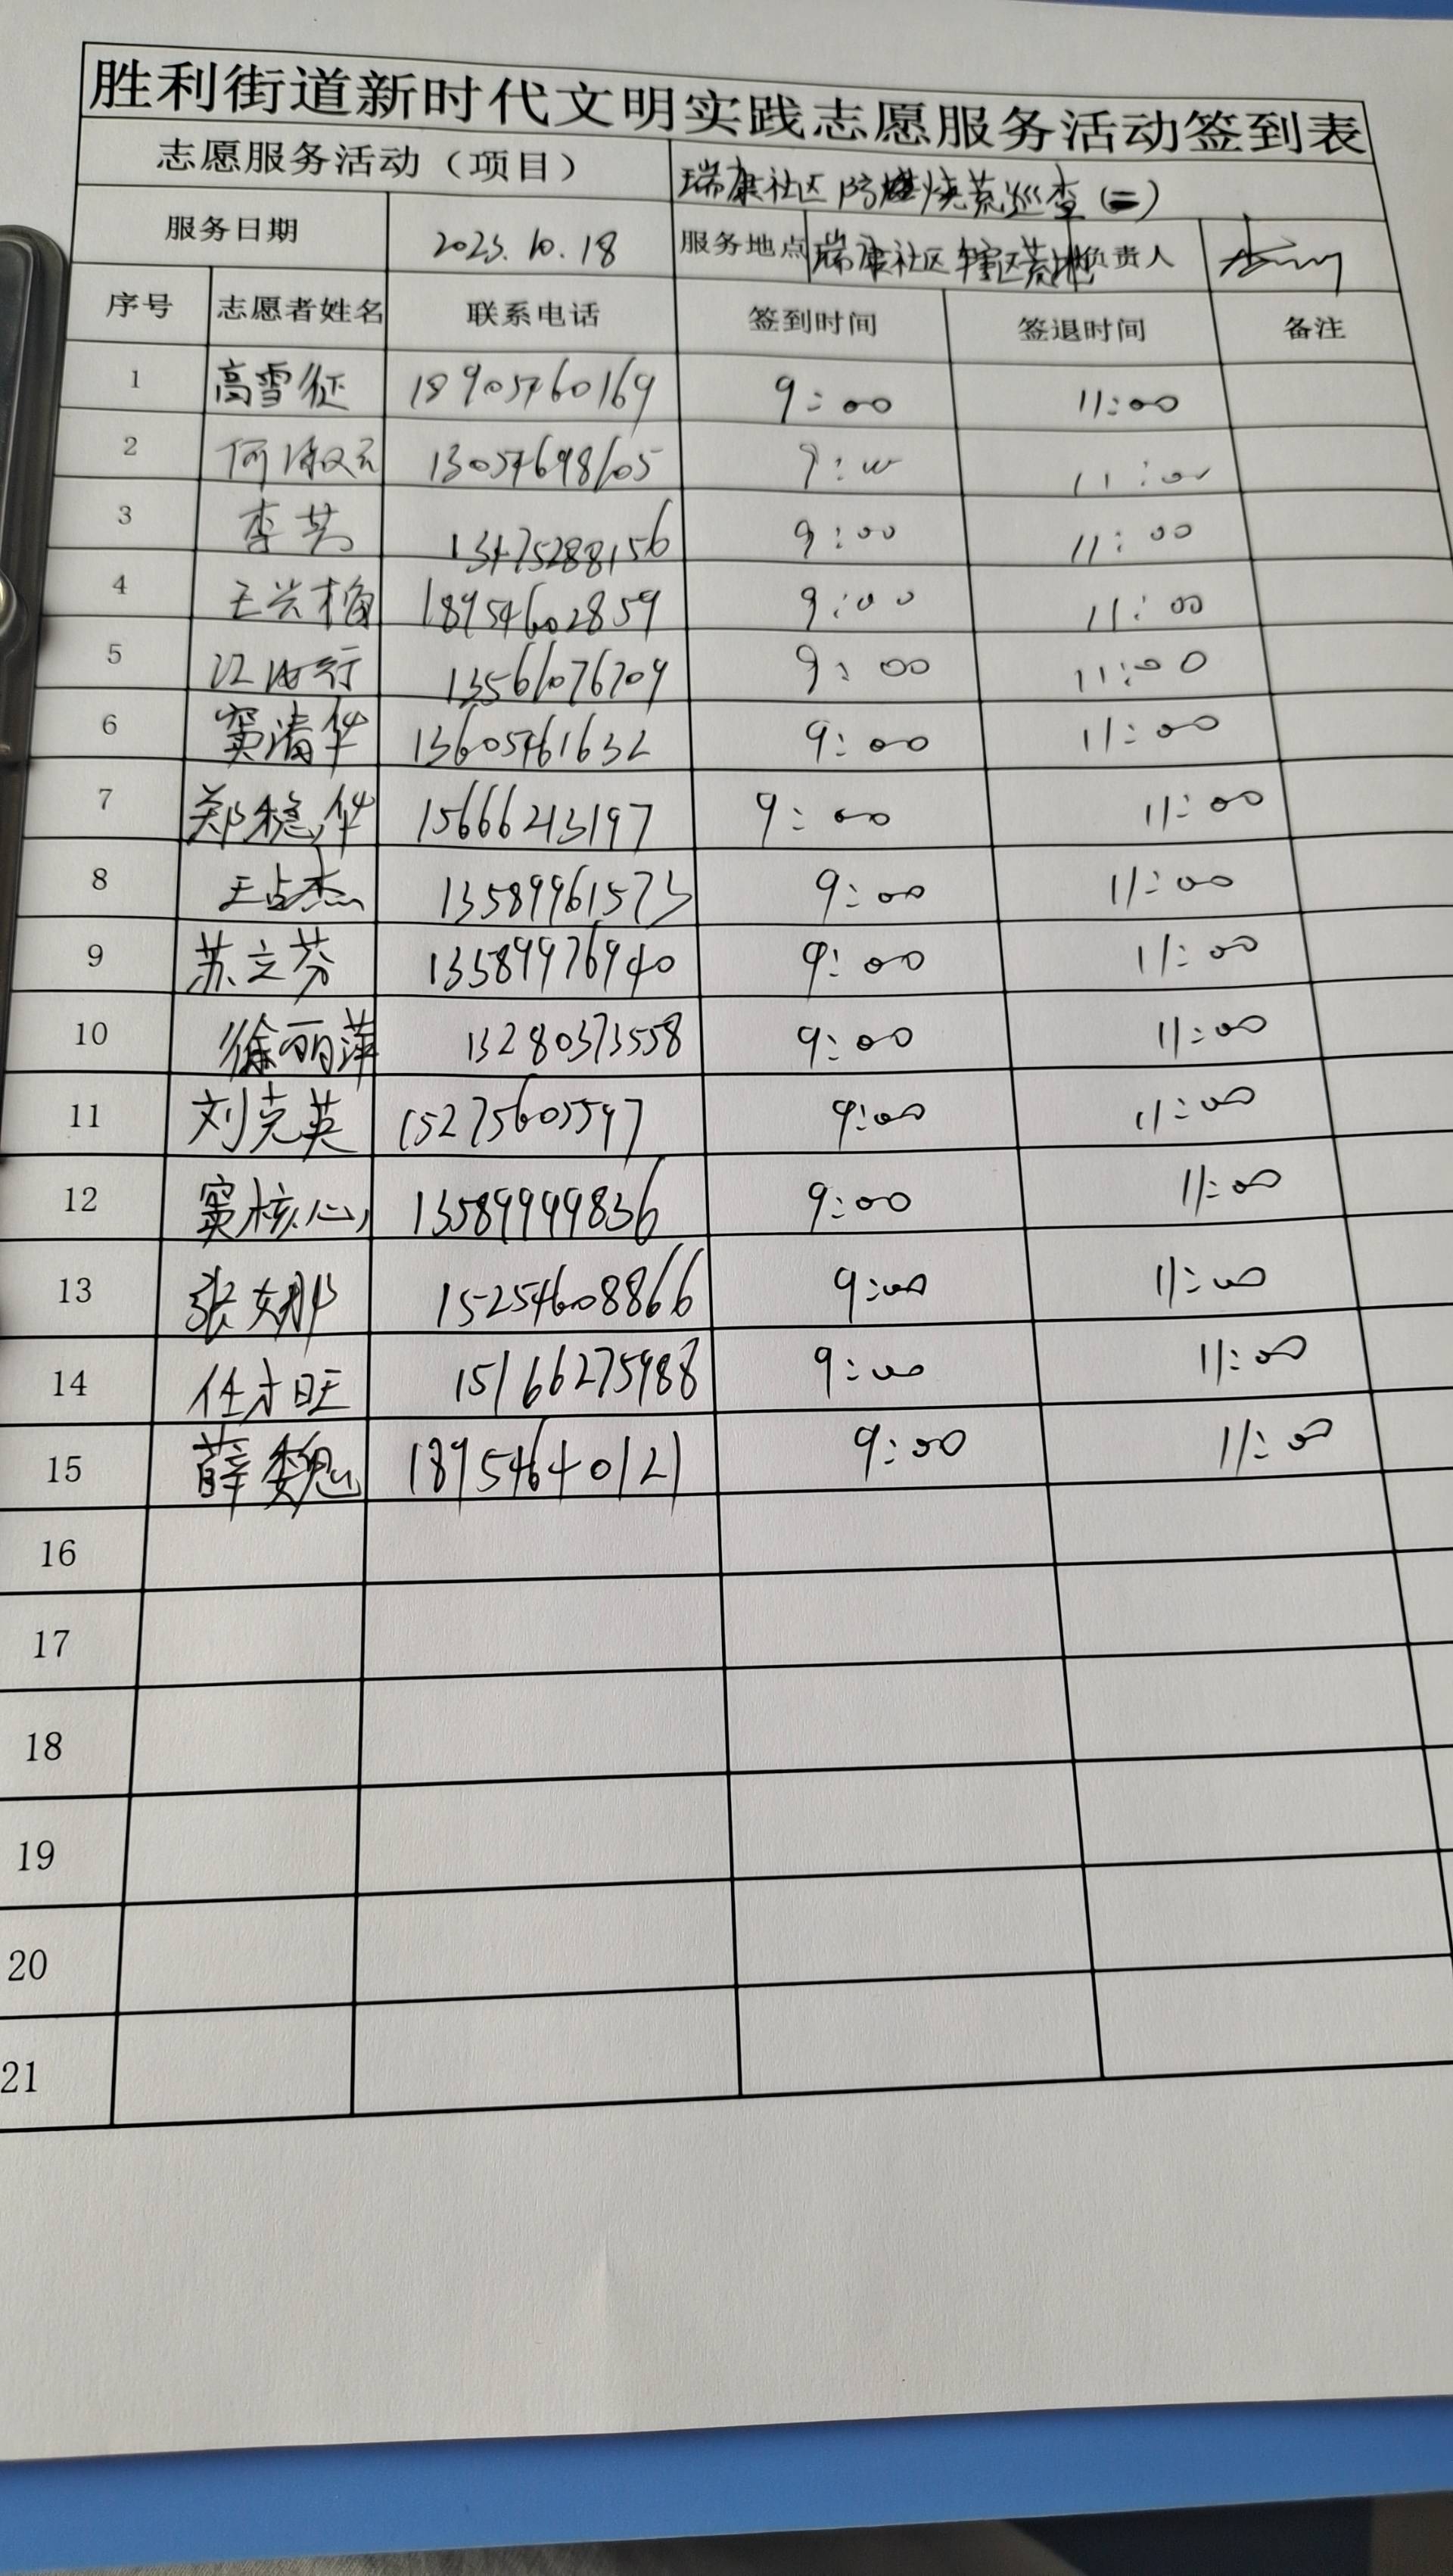 胜利街道新时代文明实践志愿服务活动签到表
志愿服务活动（项目） 瑞康社区防燃烧荒巡查(二)
服务日期 2023.10.18 服务地点 瑞康社区辖区荒地 负责人
序号 志愿者姓名 联系电话 签到时间 签退时间 备注
1 高雪征 18905460169 9:00 11:00
2 13054698105 9:00 11:00
3 李芳 13475288156 9:00 11:00
4 王兴梅 18954602859 9:00 11:00
5 13561076709 9:00 11:00
6 窦清华 13605461632 9:00 11:00
7 郑稳华 15666213197 9:00 11:00
8 王占杰 13589961573 9:00 11:00
9 苏立芬 13589976940 9:00 11:00
10 徐丽萍 13280373558 9:00 11:00
11 刘克英 15275605597 9:00 11:00
12 窦核心 13589999836 9:00 11:00
13 张娜 15254608866 9:00 11:00
14 任才旺 15166275988 9:00 11:00
15 薛魏 18954640121 9:00 11:00
16
17
18
19
20
21